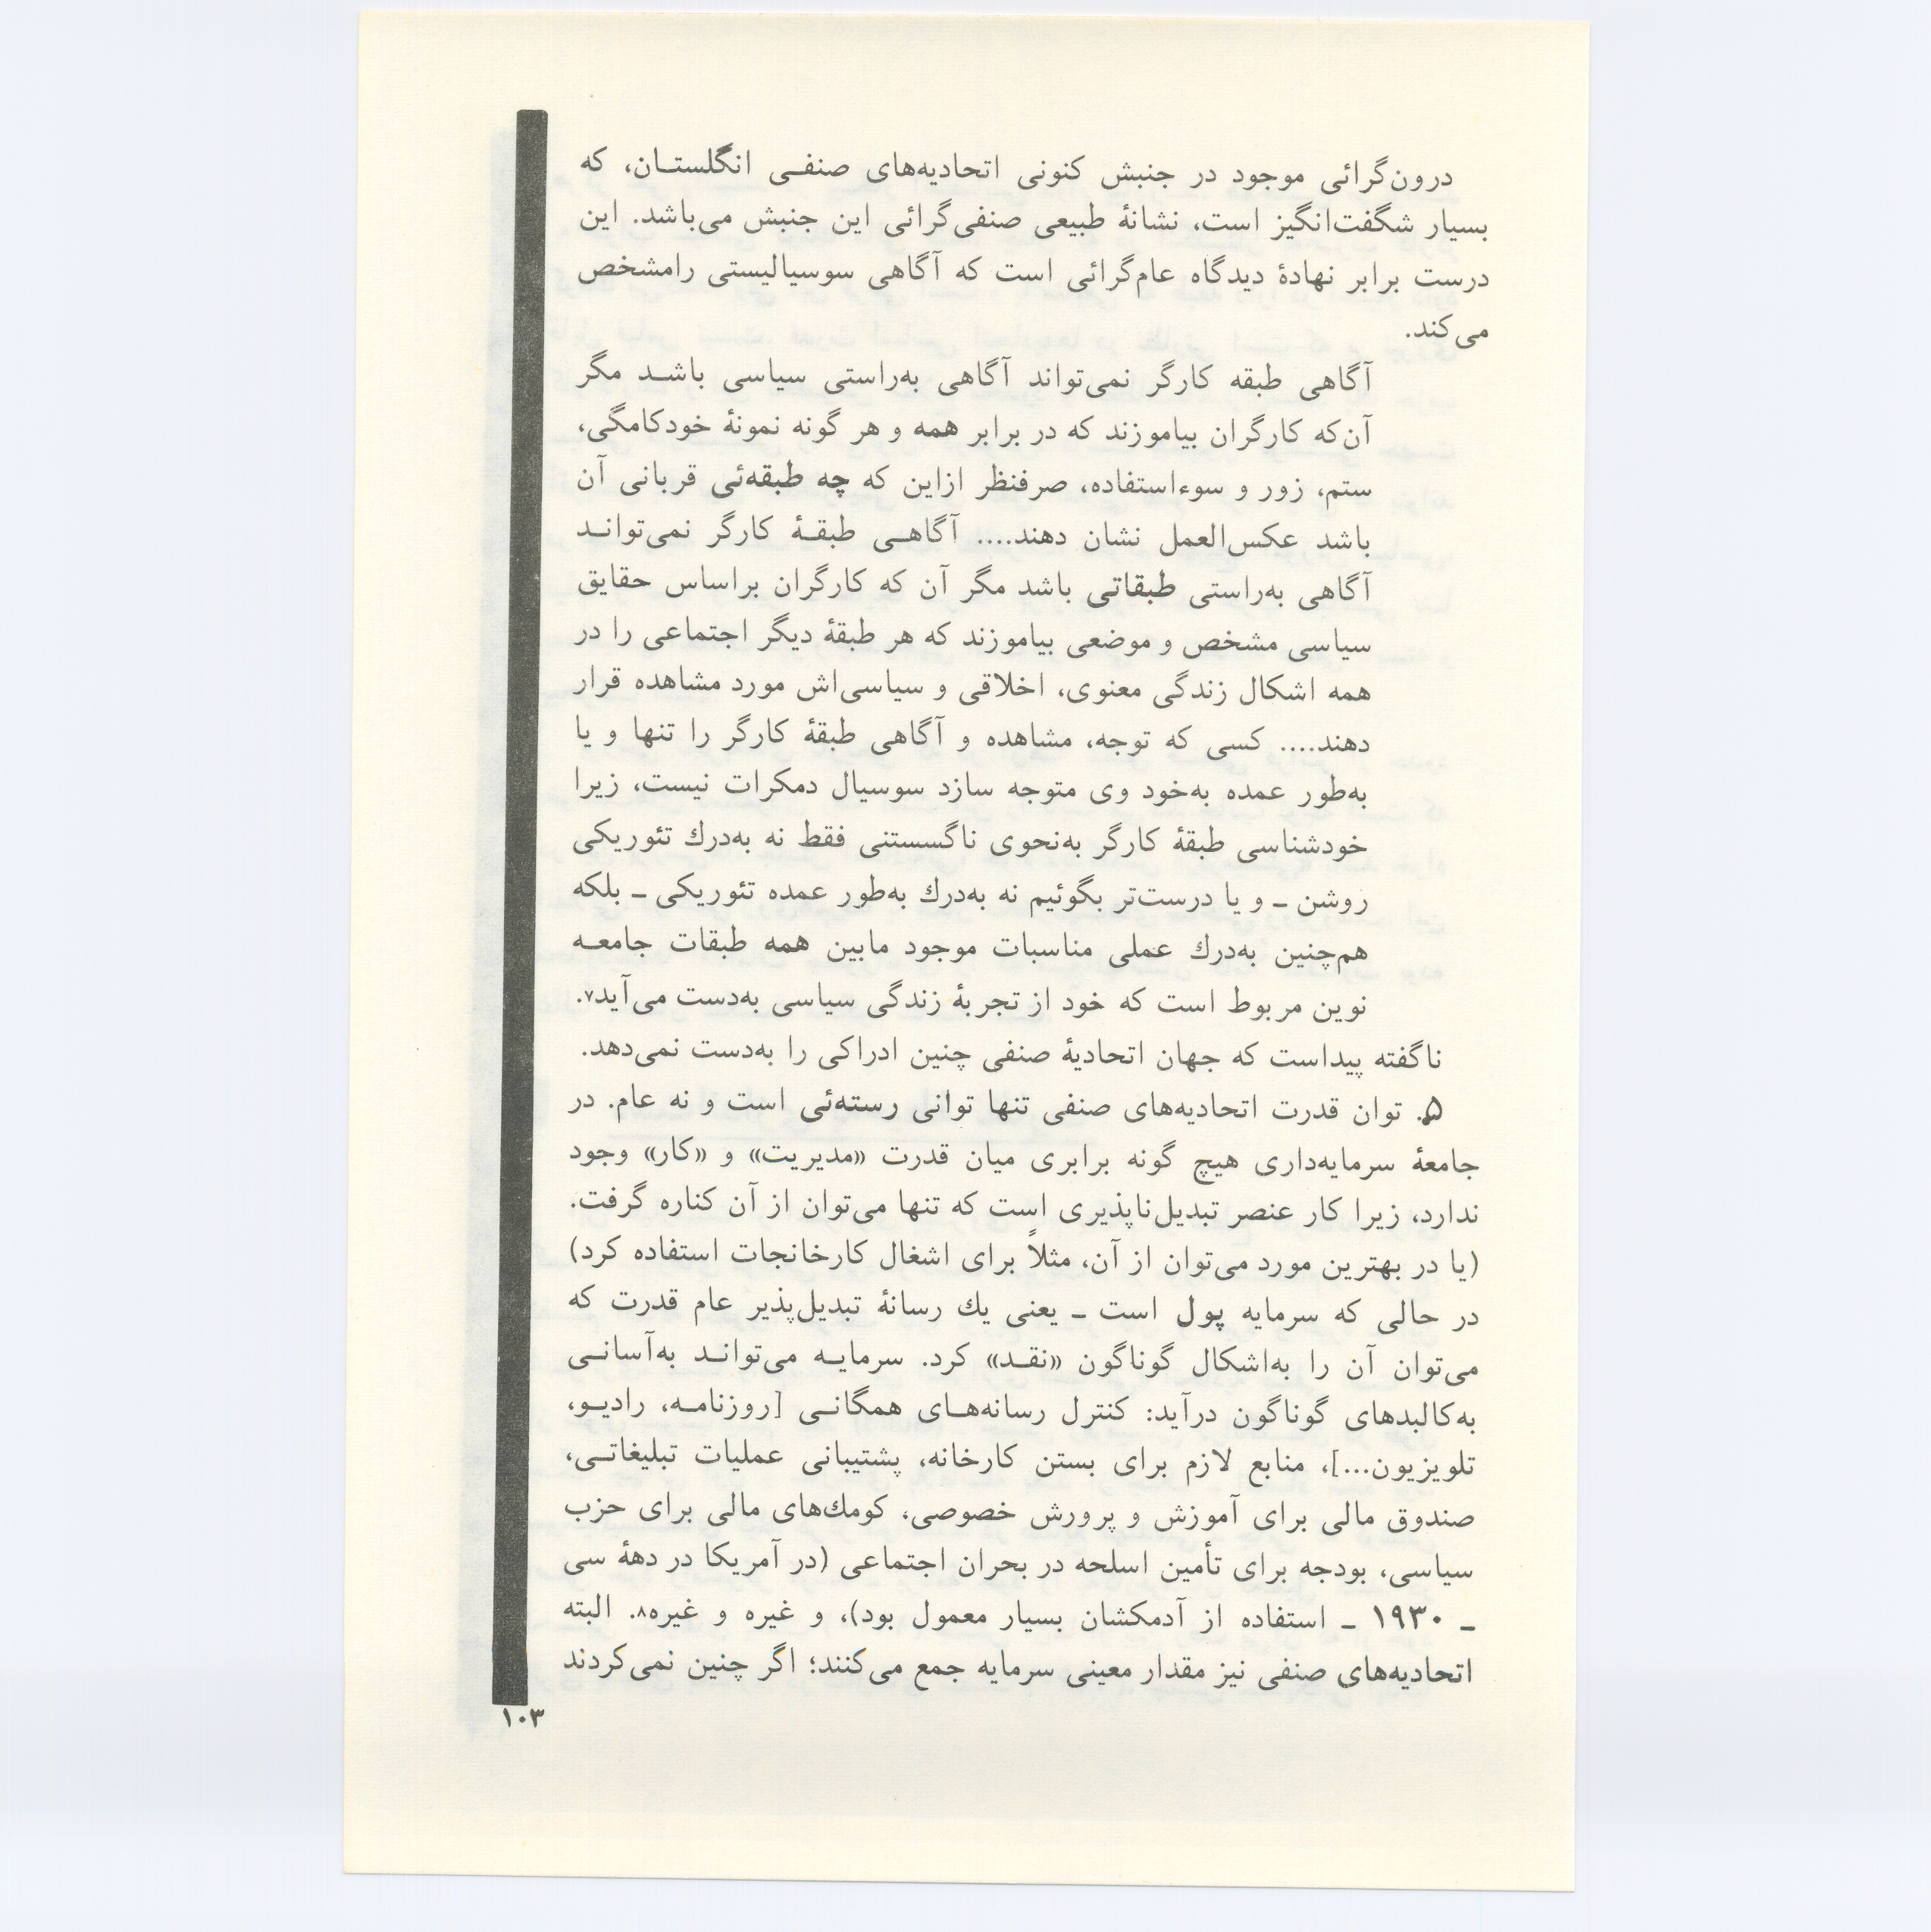 درون‌گرائی موجود در جنبش کنونی اتحادیه‌های صنفـی انگلستـان، که
بسیار شگفت‌انگیز است، نشانهٔ طبیعی صنفی‌گرائی این جنبش می‌باشد. این
درست برابر نهادهٔ دیدگاه عام‌گرائی است که آگاهی سوسیالیستی رامشخص
می‌کند.
آگاهی طبقه کارگر نمی‌تواند آگاهی به‌راستی سیاسی باشـد مگر
آن‌که کارگران بیاموزند که در برابر همه و هر گونه نمونهٔ خودکامگی،
ستم، زور و سوءاستفاده، صرفنظر ازاین که چه طبقه‌ئی قربانی آن
باشد عکس‌العمل نشان دهند.... آگاهـی طبقـهٔ کارگر نمی‌توانـد
آگاهی به‌راستی طبقاتی باشد مگر آن که کارگران براساس حقایق
سیاسی مشخص و موضعی بیاموزند که هر طبقهٔ دیگر اجتماعی را در
همه اشکال زندگی معنوی، اخلاقی و سیاسی‌اش مورد مشاهده قرار
دهند.... کسی که توجه، مشاهده و آگاهی طبقهٔ کارگر را تنها و یا
به‌طور عمده به‌خود وی متوجه سازد سوسیال دمکرات نیست، زیرا
خودشناسی طبقهٔ کارگر به‌نحوی ناگسستنی فقط نه به‌درك تئوریکی
روشن ـ و یا درست‌تر بگوئیم نه به‌درك به‌طور عمده تئوریکی ـ بلکه
هم‌چنین به‌درك عملی مناسبات موجود مابین همه طبقات جامعـه
نوین مربوط است که خود از تجربهٔ زندگی سیاسی به‌دست می‌آید۷.
ناگفته پیداست که جهان اتحادیهٔ صنفی چنین ادراکی را به‌دست نمی‌دهد.
۵. توان قدرت اتحادیه‌های صنفی تنها توانی رسته‌ئی است و نه عام. در
جامعهٔ سرمایه‌داری هیچ گونه برابری میان قدرت «مدیریت» و «کار» وجود
ندارد، زیرا کار عنصر تبدیل‌ناپذیری است که تنها می‌توان از آن کناره گرفت.
(یا در بهترین مورد می‌توان از آن، مثلاً برای اشغال کارخانجات استفاده کرد)
در حالی که سرمایه پول است ـ یعنی یك رسانهٔ تبدیل‌پذیر عام قدرت که
می‌توان آن را به‌اشکال گوناگون «نقـد» کرد. سرمایـه می‌توانـد به‌آسانـی
به‌کالبدهای گوناگون درآید: کنترل رسانه‌هـای همگانـی [روزنامـه، رادیـو،
تلویزیون...]، منابع لازم برای بستن کارخانه، پشتیبانی عملیات تبلیغاتـی،
صندوق مالی برای آموزش و پرورش خصوصی، کومك‌های مالی برای حزب
سیاسی، بودجه برای تأمین اسلحه در بحران اجتماعی (در آمریکا در دههٔ سی
ـ ۱۹۳۰ ـ استفاده از آدمکشان بسیار معمول بود)، و غیره و غیره۸. البته
اتحادیه‌های صنفی نیز مقدار معینی سرمایه جمع می‌کنند؛ اگر چنین نمی‌کردند
۱۰۳